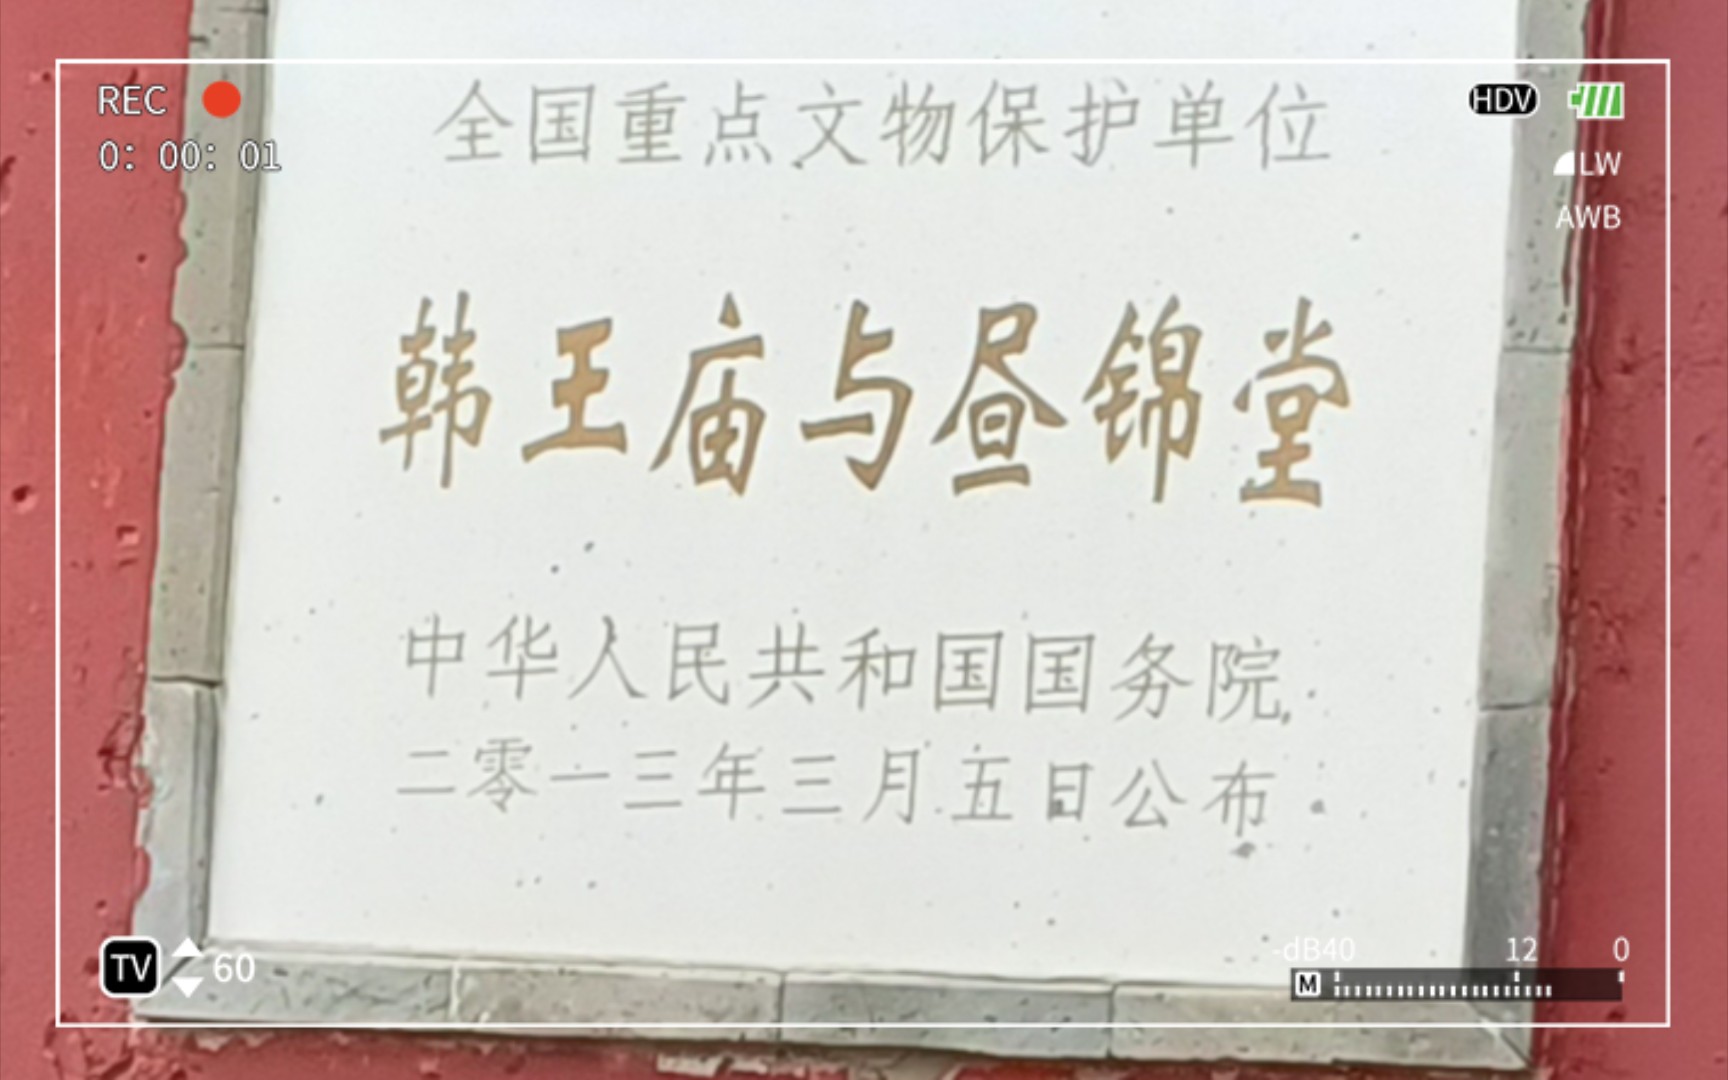 REC
0: 00: 01
HDV
LW
AWB
全国重点文物保护单位
韩王庙与昼锦堂
中华人民共和国国务院
二零一三年三月五日公布
TV 60
-dB40 12 0
M